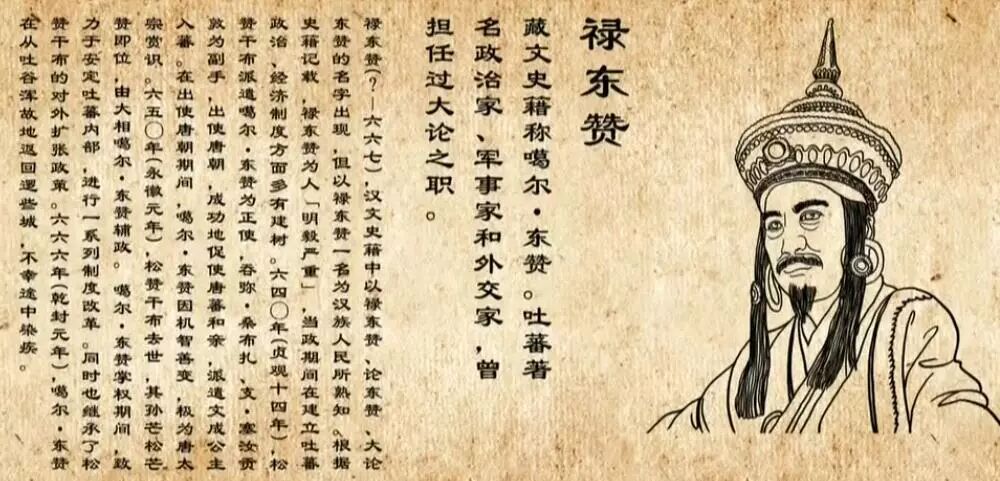 禄东赞
藏文史籍称噶尔·东赞。吐蕃著
名政治家、军事家和外交家，曾
担任过大论之职。
禄东赞（？—六六七），汉文史籍中以禄东赞、论东赞、大论
东赞的名字出现，但以禄东赞一名为汉族人民所熟知。根据
史籍记载，禄东赞为人「明毅严重」，当政期间在建立吐蕃
政治、经济制度方面多有建树。六四〇年（贞观十四年），松
赞干布派遣噶尔·东赞为正使，吞弥·桑布扎、支·塞汝贡
敦为副手，出使唐朝，成功地促使唐蕃和亲，派遣文成公主
入蕃。在出使唐朝期间，噶尔·东赞因机智善变，极为唐太
宗赏识。六五〇年（永徽元年），松赞干布去世，其孙芒松芒
赞即位，由大相噶尔·东赞辅政。噶尔·东赞掌权期间，致
力于安定吐蕃内部，进行一系列制度改革。同时也继承了松
赞干布的对外扩张政策。六六六年（乾封元年），噶尔·东赞
在从吐谷浑故地返回逻些城，不幸途中染疾。